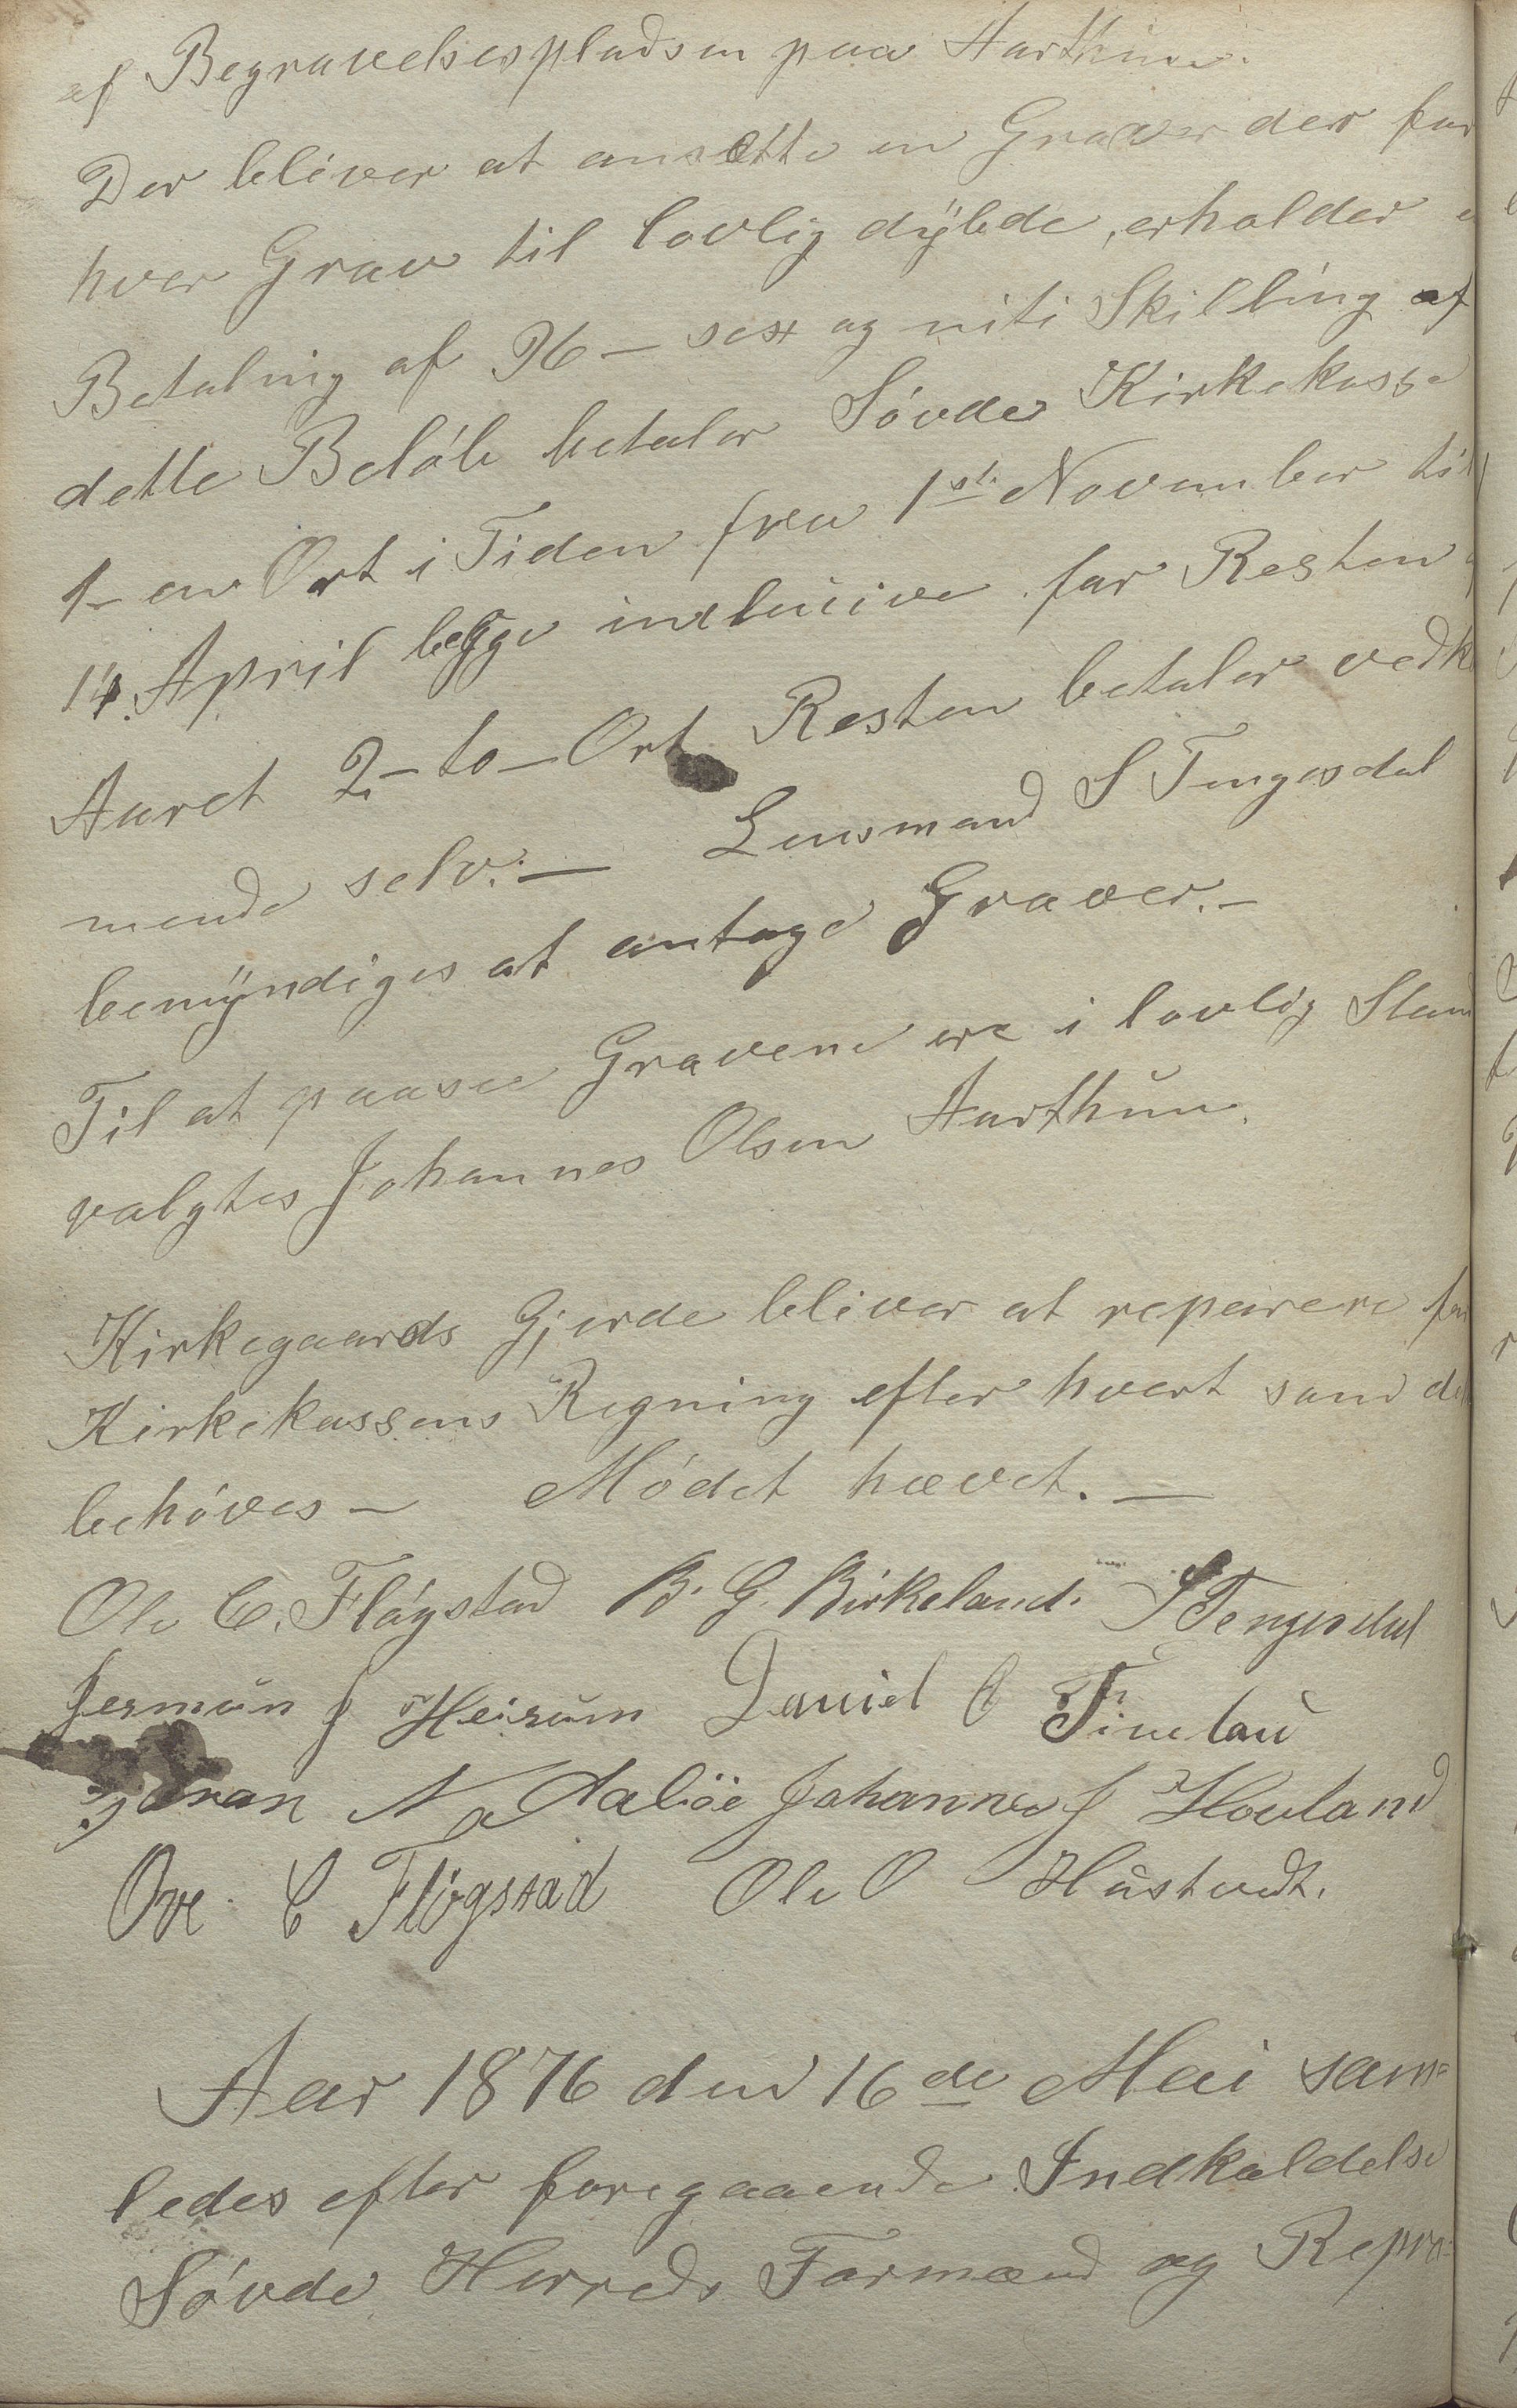 af Begravelsespladsen paa Aarthun.
Der bliver at ansette en Graver der for
hver Grav til lovlig dÿbde, erholder
Betaling af 96 – sex og niti Skilling af
dette Beløb betaler Søvde Kirkekasse
1 – en Ort i Tiden fra 1ste November til
14. April begge inclusive for Resten
Aaret 2 – to – Ort Resten betaler vedk
mende selv. – Lensmand S Tengesdal
bemÿndiges at antage Graver. –
Til at paasee Gravene ere i lovlig Stand
valgtes Johannes Olsen Aarthun.
Kirkegaards Gjerde bliver at reparere for
Kirkekassens Regning efter hvert som de
behøves – Mødet hævet. –
Ole C. Fløgstad B. G. Birkeland. S Tengesdal
Jermun J Heisum Daniel O
N Dalöe Johannes J Hovland
Ove C Fløgstad Ole O Hustvedt.
Aar 1876 den 16de Mai sam=
ledes efter foregaaende Indkaldelse
Søvde Herreds Formænd og Repræ=